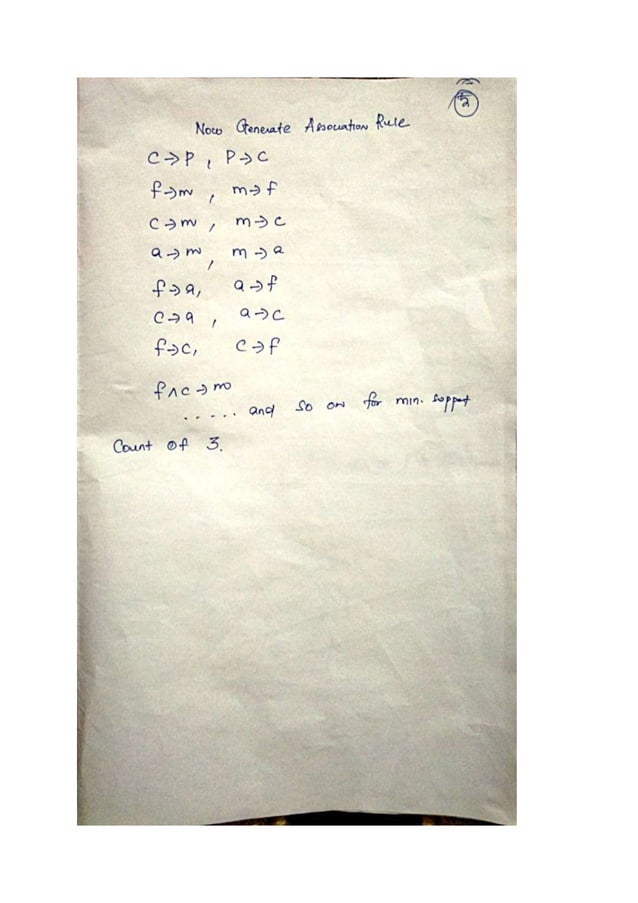 2
Now Generate Association Rule
C→P, P→C
f→m, m→f
C→m, m→c
a→m, m→a
f→a, a→f
C→a, a→c
f→c, c→f
f∧c→m
..... and so on for min. support
Count of 3.